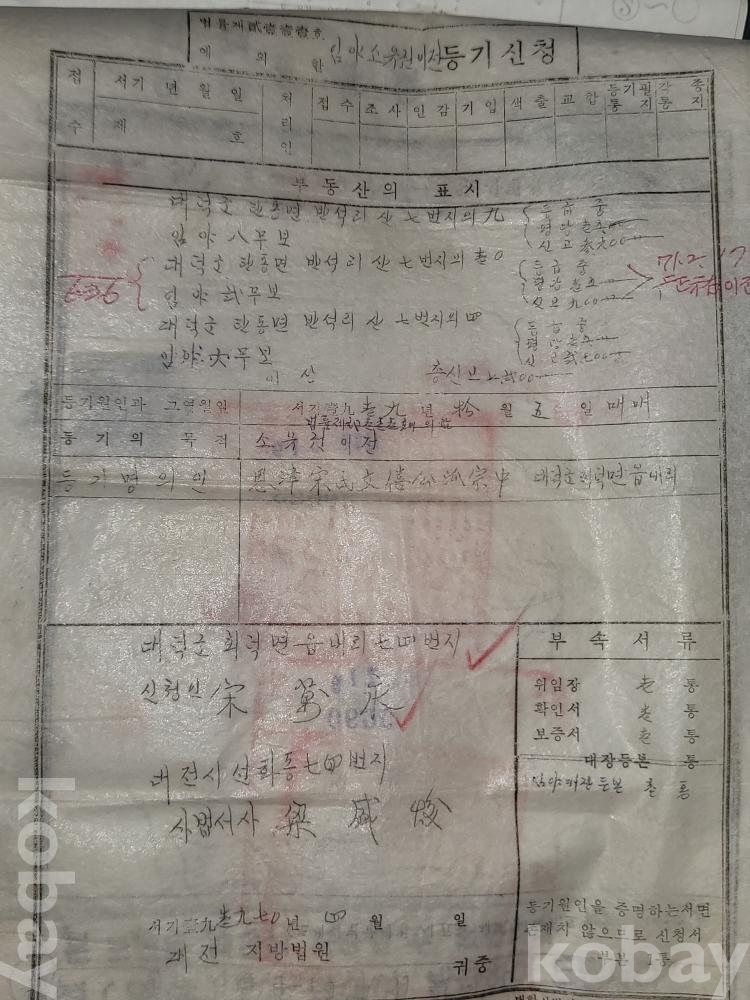 법률제貳壹壹壹호
에 의 한 임야소유권이전등기신청
접수
서기 년 월 일
제 호
처리인
접수 조사 인감 기입 색출 교합 등기필통지 각종통지
부동산의 표시
대덕군 탄동면 반석리 산七번지의九
임야八무보
등급 중
대덕군 탄동면 반석리 산七번지의壱0
임야弐무보
등급 중
대덕군 탄동면 반석리 산七번지의四
임야六무보
등급 중
이산
71.2.17
등기원인과 그연월일 서기壹九 년 拾 월 五 일 매매
등기의 목적 소유권이전
등기명의인 恩津宋氏文僖公派宗中 대덕군회덕면읍내리
대덕군 회덕면 읍내리 七四번지
신청인 宋 萬 永
대전시 선화동 七四번지
사법서사 梁 盛 俊
부속서류
위임장 壱 통
확인서 壱 통
보증서 壱 통
대장등본 통
임야대장등본 壱 통
서기壹九 七0년 四 월 일
대전 지방법원
귀중
등기원인을 증명하는서면
존재치 않으므로 신청서
부본 1통
kobay
kobay